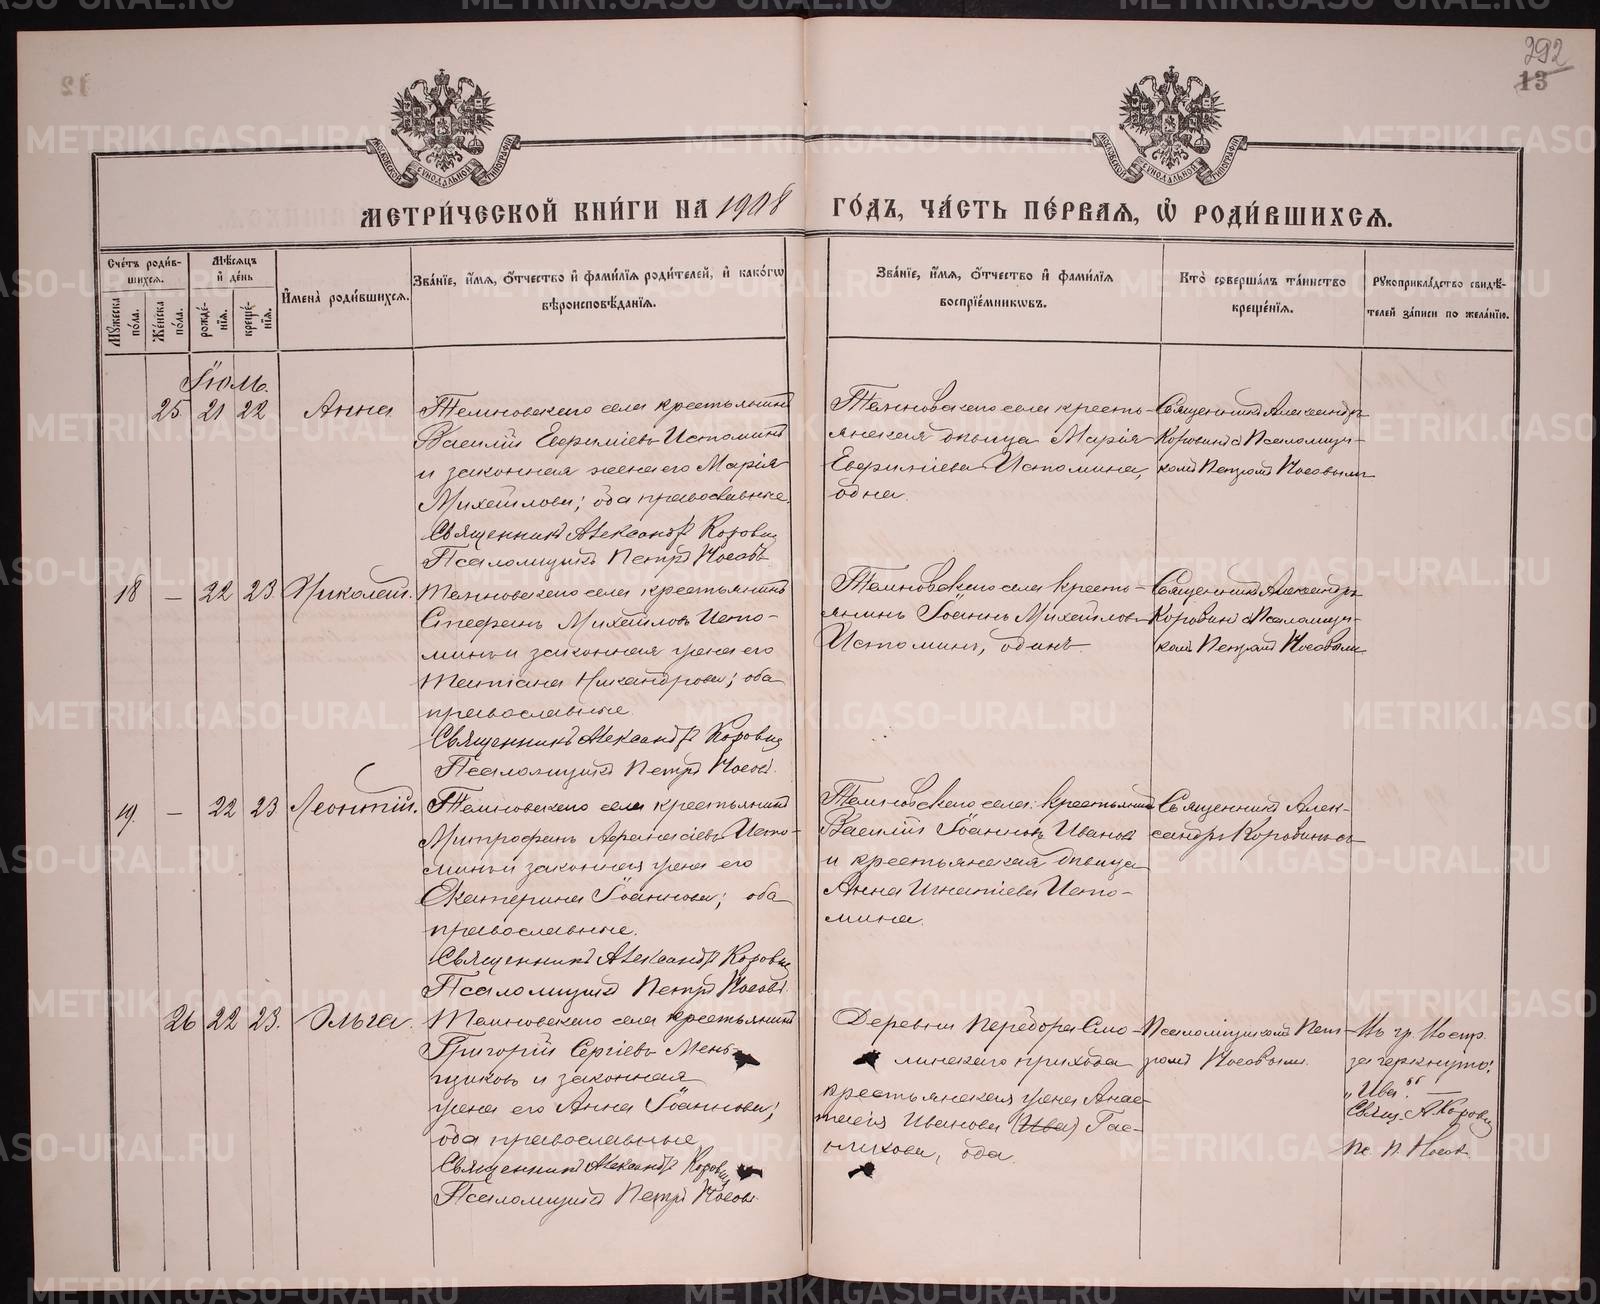 292
13
МЕТРИ́ЧЕСКОЙ КНИ́ГИ НА 1908 ГО́ДЪ, ЧА́СТЬ ПЕ́РВАЯ, Ѡ҆ РОДИ́ВШИХСЯ.
Сче́тъ роди́в-
шихся.
Мꙋ́жеска по́ла.
Же́нска по́ла.
Мѣ́сяцъ и҆ де́нь
рожде́-
нїя.
креще́-
нїя.
И҆мена̀ роди́вшихся.
Зва́нїе, и҆́мя, ѻ҆́тчество и҆ фами́лїя роди́телей, и҆ како́гѡ
вѣроисповѣ́данїя.
Зва́нїе, и҆́мя, ѻ҆́тчество и҆ фами́лїя
воспрїе́мникѡвъ.
Кто̀ соверша́лъ та́инство
креще́нїя.
Рꙋкоприкла́дство свидѣ́-
телей за́писи по жела́нїю.
Іюль.
25 21 22 Анна
Темновскаго села крестьянинъ
Василій Евфиміевъ Истоминъ
и законная жена его Марія
Михайлова; оба православные.
Священникъ Александръ Коровин
Псаломщикъ Петръ Носовъ
Темновскаго села кресть-
янская дѣвица Марія
Евфиміева Истомина,
одна.
Священникъ Александръ
Коровинъ съ Псаломщи-
комъ Петромъ Носовымъ
18 — 22 23 Николай.
Темновскаго села крестьянинъ
Стефанъ Михайловъ Исто-
минъ и законная жена его
Татіана Никандрова; оба
православные.
Священникъ Александръ Коровин
Псаломщикъ Петръ Носовъ.
Темновскаго села кресть-
янинъ Іоаннъ Михайловъ
Истоминъ, одинъ.
Священникъ Александръ
Коровинъ съ Псаломщи-
комъ Петромъ Носовымъ
19. — 22 23 Леонтій.
Темновскаго села крестьянинъ
Митрофанъ Афанасіевъ Исто-
минъ и законная жена его
Екатерина Іоаннова; оба
православные.
Священникъ Александръ Коровин
Псаломщикъ Петръ Носовъ.
Темновскаго села крестьянинъ
Василій Іоанновъ Ивановъ
и крестьянская дѣвица
Анна Игнатіева Исто-
мина.
Священникъ Алек-
сандръ Коровинъ съ
Псаломщикомъ Пет-
ромъ Носовымъ.
26 22 23. Ольга.
Темновскаго села крестьянинъ
Григорій Сергіевъ Мень-
щиковъ и законная
жена его Анна Іоаннова;
оба православные
Священникъ Александръ Коровин
Псаломщикъ Петръ Носовъ.
Деревни Перебора Смо-
линскаго прихода
крестьянская жена Анас-
тасія Иванова (Ива)
Въ гр. Воспр.
зачеркнуто:
„Ива“. —
Свящ. А. Коровин
Пс. П. Носовъ
METRIKI.GASO-URAL.RU